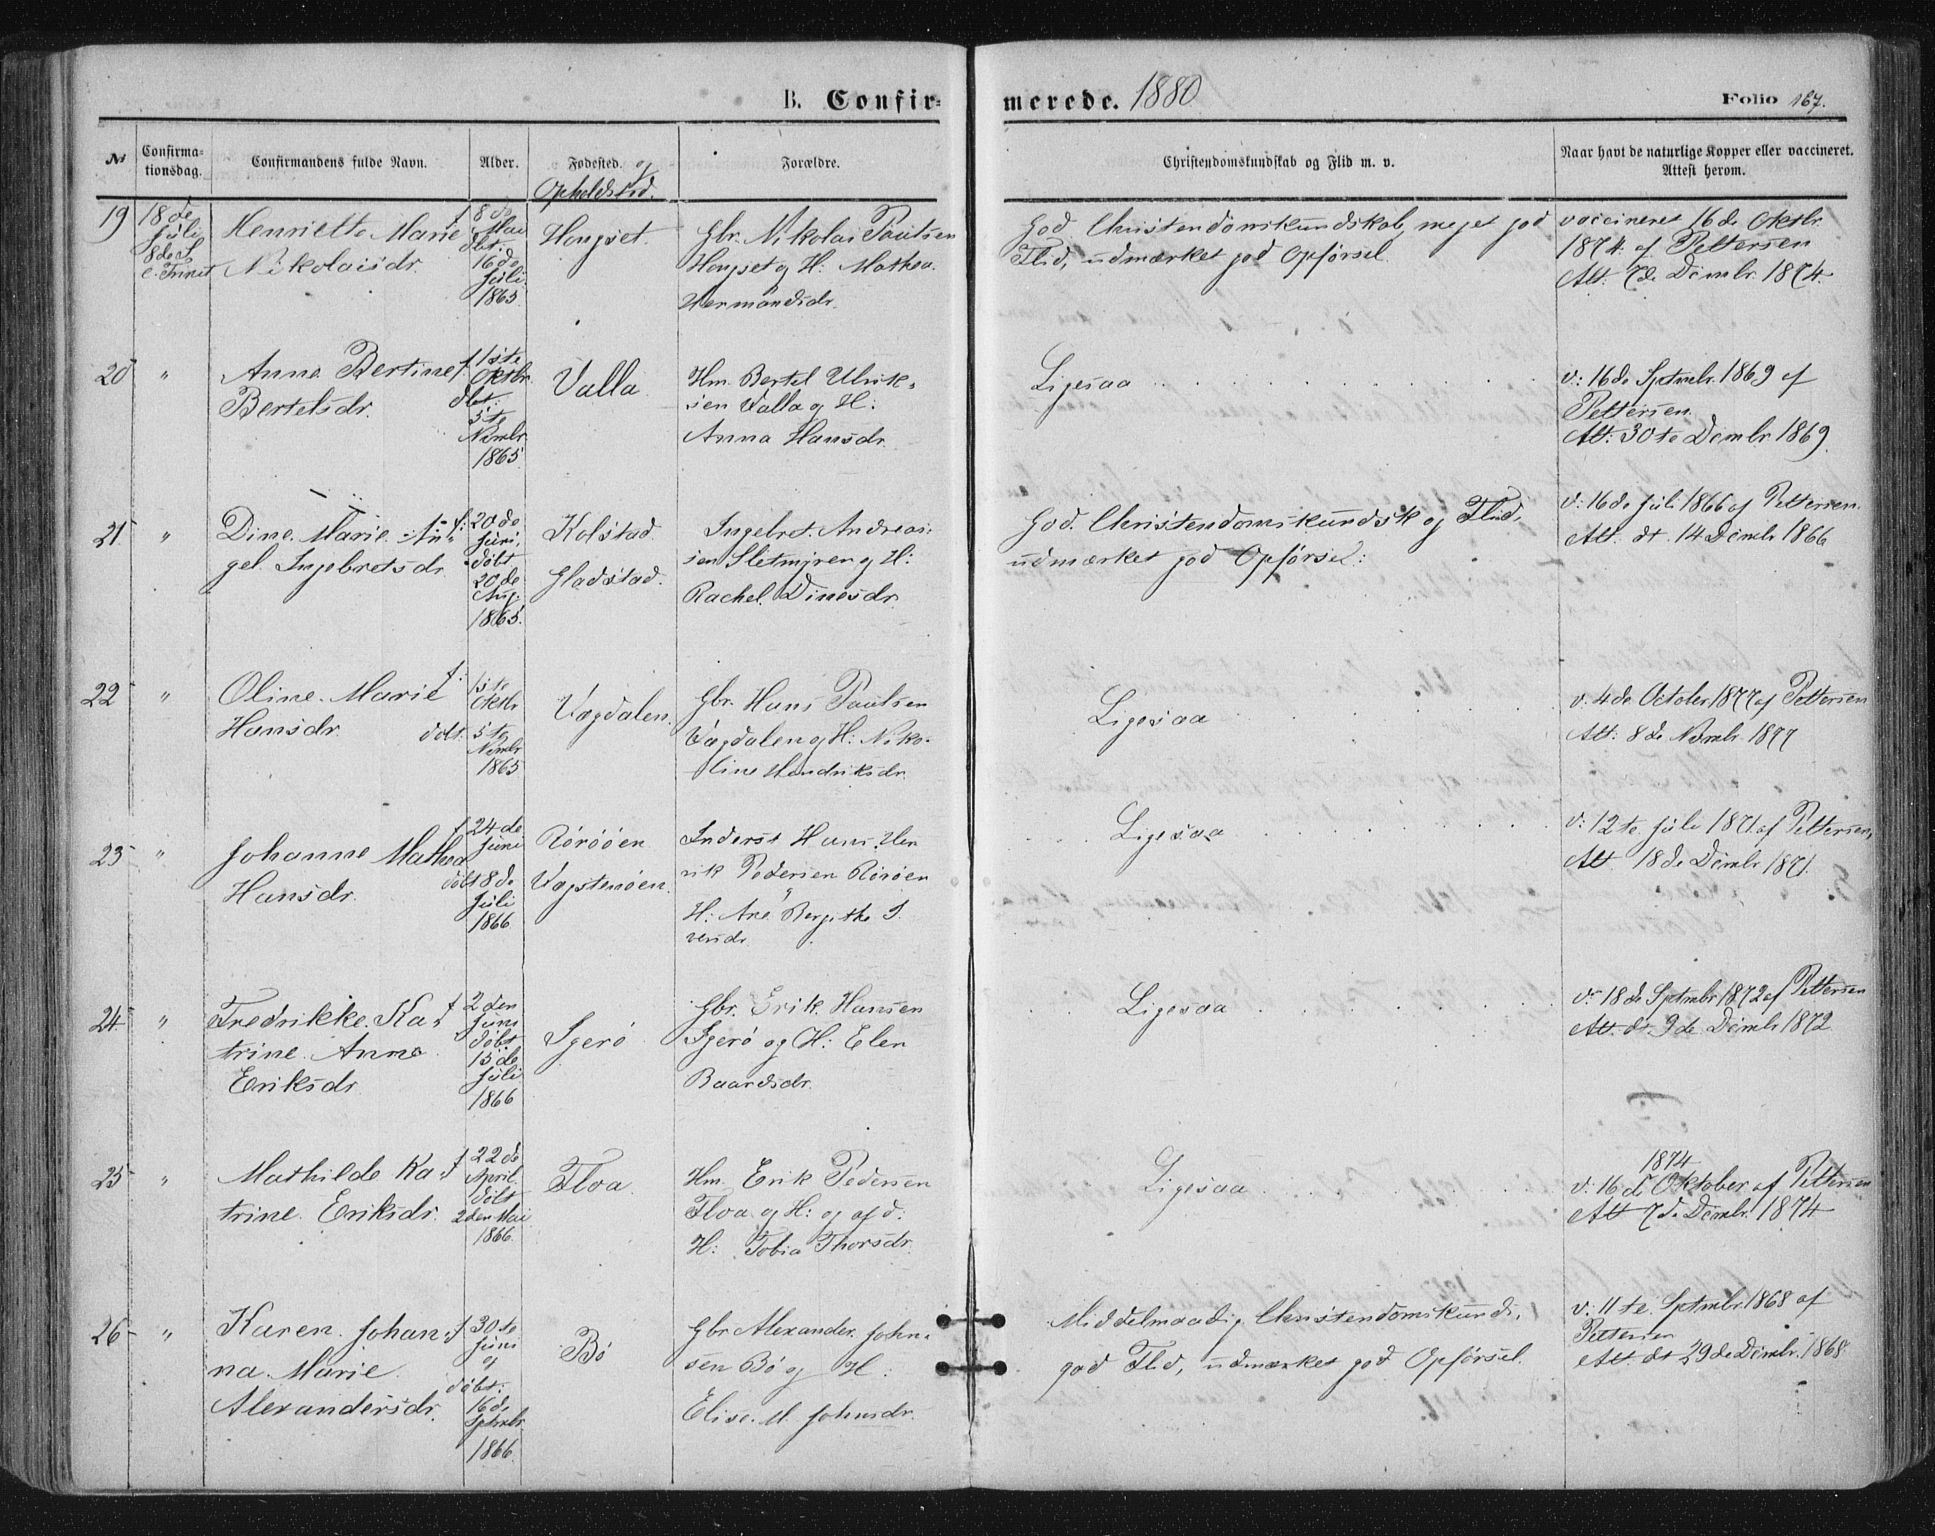 B. Confirmerede. 1880
Folio 167.
No
Confirma-
tionsdag.
Confirmandens fulde Navn.
Alder.
Fødested. og
Opholdssted.
Forældre.
Christendomskundskab og Flid m. v.
Naar havt de naturlige Kopper eller vaccineret.
Attest herom.
19
18de
Juli
8de S.
e. Trinit
Henriette Marie
Nikolaisdr.
f 8de
Mai
dbt:
16de
Juli
1865
Houpset.
Gbr. Nikolai Paulsen
Houpset og H: Mathea
Hermandsdr.
God Christendomskundskab, meget god
Flid, udmærket god Opførsel.
vaccineret 16de Oktbr.
1874 af Pettersen
Att: 7de Dcmbr. 1874.
20 "
Anna Bertine
Bertelsdr.
f. 1ste
Oktbr.
dbt:
5te
Nvmbr
1865
Valla
Hm. Bertel Ulrik-
sen Valla og H:
Anna Hansdr.
Ligesaa
v: 16de Sptmbr. 1869 af
Pettersen.
Att: 30te Dcmbr 1869.
21 "
Dine Marie An-
gel Ingebretsdr
f: 20de
Juni.
døbt
20de
Aug.
1865.
Kolstad.
Gladstad.
Ingebret Andreas-
sen Sletmyren og H:
Rachel Dinesdr.
God Christendomskundsk og Flid,
udmærket god Opførsel:
v: 16de Juli 1866 af Pettersen.
Att. dt. 14 Dcmbr 1866
22 "
Oline Marie
Hansdr.
f. 1ste
Oktbr
døbt. 5te
Nvmbr
1865
Vægdalen.
Gbr. Hans Paulsen
Vægdalen og H: Niko-
line Hendriksdr.
Ligesaa
v. 4de October 1877 af Pettersen
Att: 8de Nvmbr. 1877
23 "
Johanne Mathea
Hansdr.
f 24de
Juni
døbt 8de
Juli
1866
Rörøøen
Vægstenøen.
Inderst Hans Hen
rik Pedersen Rörøen
H: Ane Bergithe I
versdr.
Ligesaa
v: 12te Juli 1871 af Pettersen,
Att 18de Dcmbr 1871.
24 "
Fredrikke Ka-
trine Anna
Eriksdr.
f 2den
Juni
døbt
15de
Juli
1866
Igerø
Gbr. Erik Hansen
Igerø og H: Elen
Baardsdr.
Ligesaa
v. 18de Sptmbr 1872 af Pettersen
Att. dt 9de Dcmbr 1872
25 "
Mathilde Ka-
trine Eriksdr.
f 22de
April.
døbt
2den Mai
1866.
Floa
Hm Erik Pedersen
Floa og H: og afd:
H: Tobia Thorsdr.
Ligesaa
1874
v: 16de Oktober af Pettersen
Att 7de Dcmbr. 1874
26 "
Karen Johan-
na Marie
Alexandersdr.
f 30te
Juni
og
døbt:
16de
Sptmbr
1866
Bø
Gbr Alexander John-
sen Bø og H:
Elise M Johnsdr.
Middelmaadig Christendomskunds.
god Flid, udmærket god Opførsel.
v: 11te Sptmbr 1868 af
Pettersen
Att. dt 29de Dcmbr. 1868